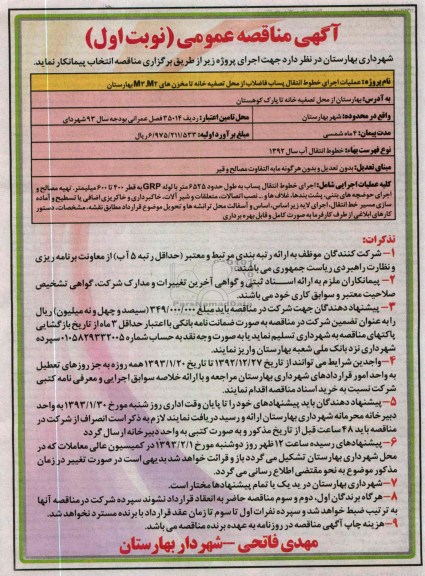 آگهی مناقصه عمومی (نوبت اول)
شهرداری بهارستان در نظر دارد جهت اجرای پروژه زیر از طریق برگزاری مناقصه انتخاب پیمانکار نماید.
نام پروژه: عملیات اجرای خطوط انتقال پساب فاضلاب از محل تصفیه خانه تا مخزن های M3,M2 بهارستان
به آدرس: بهارستان از محل تصفیه خانه تا پارک کوهستان
واقع در محدوده: شهر بهارستان
محل تامین اعتبار: ردیف ۳۵۰۱۴ فصل عمرانی بودجه سال ۹۳ شهرداری
مدت پیمان: ۴ ماه شمسی
مبلغ برآورد اولیه: ۶/۹۷۵/۲۱۱/۵۳۳ ریال
نوع فهرست بهاء: خطوط انتقال آب سال ۱۳۹۲
مبنای تعدیل: بدون تعدیل و بدون هرگونه مابه التفاوت مصالح و قیر
کلیه عملیات اجرایی شامل: اجرای خطوط انتقال پساب به طول حدود ۶۵۲۵ متر با لوله GRP به قطر ۴۰۰ تا ۶۰۰ میلیمتر، تهیه مصالح و
اجرای حوضچه های بتنی، پشت بندها، غلاف ها و ... نصب اتصالات، متعلقات و شیر آلات، خاکبرداری و خاکریزی اضافی یا تسطیح و آماده
سازی مسیر خط انتقال، اجرای لایه زیر اساس، اساس و آسفالت محل ترانشه ها و تحویل موضوع قرارداد مطابق نقشه، مشخصات، دستور
کارهای ابلاغی از طرف کارفرما به صورت کامل و قابل بهره برداری
تذکرات:
۱- شرکت کنندگان موظف به ارائه رتبه بندی مرتبط و معتبر (حداقل رتبه ۵ آب) از معاونت برنامه ریزی
و نظارت راهبردی ریاست جمهوری می باشند.
۲- پیمانکاران ملزم به ارائه اسناد ثبتی و گواهی آخرین تغییرات و مدارک شرکت، گواهی تشخیص
صلاحیت معتبر و سوابق کاری خود می باشند.
۳- پیشنهاد دهندگان جهت شرکت در مناقصه باید مبلغ ۳۴۹/۰۰۰/۰۰۰ (سیصد و چهل و نه میلیون) ریال
را به عنوان تضمین شرکت در مناقصه به صورت ضمانت نامه بانکی با اعتبار حداقل ۳ ماه از تاریخ بازگشایی
پاکتهای مناقصه به شهرداری تسلیم نماید یا به صورت وجه نقد به حساب شماره ۰۱۰۵۸۲۹۳۳۲۰۰۵ سپرده
شهرداری نزد بانک ملی شعبه بهارستان واریز نمایند.
۴- واجدین شرایط می توانند از تاریخ ۱۳۹۲/۱۲/۲۷ تا تاریخ ۱۳۹۳/۱/۲۰ همه روزه به جز روز های تعطیل
به واحد امور قراردادهای شهرداری بهارستان مراجعه و با ارائه خلاصه سوابق اجرایی و معرفی نامه کتبی
شرکت نسبت به خرید اسناد مناقصه اقدام نمایند.
۵- پیشنهاد دهندگان باید پیشنهادهای خود را تا پایان وقت اداری روز شنبه مورخ ۱۳۹۳/۱/۳۰ به واحد
دبیر خانه محرمانه شهرداری بهارستان ارائه و رسید دریافت نمایند لازم به ذکر است انصراف از شرکت در
مناقصه باید ۴۸ ساعت قبل از تاریخ مذکور و به صورت کتبی به واحد دبیر خانه ارسال گردد
۶- پیشنهادهای رسیده ساعت ۱۲ ظهر روز دوشنبه مورخ ۱۳۹۳/۲/۱ در کمیسیون عالی معاملات که در
محل شهرداری بهارستان تشکیل می گردد باز و قرائت خواهد شد بدیهی است در صورت تغییر در زمان
مذکور موضوع به نحو مقتضی اطلاع رسانی می گردد.
۷- شهرداری بهارستان در رد یک یا تمام پیشنهادها مختار است.
۸- هرگاه برندگان اول، دوم و سوم مناقصه حاضر به انعقاد قرارداد نشوند سپرده شرکت در مناقصه آنها
به ترتیب ضبط خواهد شد و سپرده نفرات اول تا سوم تا زمان عقد قرارداد با برنده مسترد نخواهد شد.
۹- هزینه چاپ آگهی مناقصه در روزنامه به عهده برنده مناقصه می باشد.
مهدی فاتحی - شهردار بهارستان